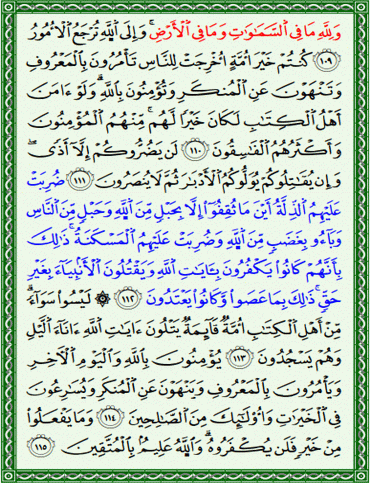 وَلِلَّهِ مَا فِي السَّمَاوَاتِ وَمَا فِي الْأَرْضِ ۚ وَإِلَى اللَّهِ تُرْجَعُ الْأُمُورُ
﴿١٠٩﴾ كُنْتُمْ خَيْرَ أُمَّةٍ أُخْرِجَتْ لِلنَّاسِ تَأْمُرُونَ بِالْمَعْرُوفِ
وَتَنْهَوْنَ عَنِ الْمُنْكَرِ وَتُؤْمِنُونَ بِاللَّهِ ۗ وَلَوْ ءَامَنَ
أَهْلُ الْكِتَابِ لَكَانَ خَيْرًا لَهُمْ ۚ مِنْهُمُ الْمُؤْمِنُونَ
وَأَكْثَرُهُمُ الْفَاسِقُونَ ﴿١١٠﴾ لَنْ يَضُرُّوكُمْ إِلَّا أَذًى ۖ
وَإِنْ يُقَاتِلُوكُمْ يُوَلُّوكُمُ الْأَدْبَارَ ثُمَّ لَا يُنْصَرُونَ ﴿١١١﴾ ضُرِبَتْ
عَلَيْهِمُ الذِّلَّةُ أَيْنَ مَا ثُقِفُوا إِلَّا بِحَبْلٍ مِنَ اللَّهِ وَحَبْلٍ مِنَ النَّاسِ
وَبَاءُو بِغَضَبٍ مِنَ اللَّهِ وَضُرِبَتْ عَلَيْهِمُ الْمَسْكَنَةُ ۚ ذَٰلِكَ
بِأَنَّهُمْ كَانُوا يَكْفُرُونَ بِـَٔايَاتِ اللَّهِ وَيَقْتُلُونَ الْأَنْبِيَاءَ بِغَيْرِ
حَقٍّ ۚ ذَٰلِكَ بِمَا عَصَوْا وَكَانُوا يَعْتَدُونَ ﴿١١٢﴾ ۞ لَيْسُوا سَوَاءً ۗ
مِنْ أَهْلِ الْكِتَابِ أُمَّةٌ قَائِمَةٌ يَتْلُونَ ءَايَاتِ اللَّهِ ءَانَاءَ اللَّيْلِ
وَهُمْ يَسْجُدُونَ ﴿١١٣﴾ يُؤْمِنُونَ بِاللَّهِ وَالْيَوْمِ الْآخِرِ
وَيَأْمُرُونَ بِالْمَعْرُوفِ وَيَنْهَوْنَ عَنِ الْمُنْكَرِ وَيُسَارِعُونَ
فِي الْخَيْرَاتِ وَأُولَٰئِكَ مِنَ الصَّالِحِينَ ﴿١١٤﴾ وَمَا يَفْعَلُوا
مِنْ خَيْرٍ فَلَنْ يُكْفَرُوهُ ۗ وَاللَّهُ عَلِيمٌ بِالْمُتَّقِينَ ﴿١١٥﴾